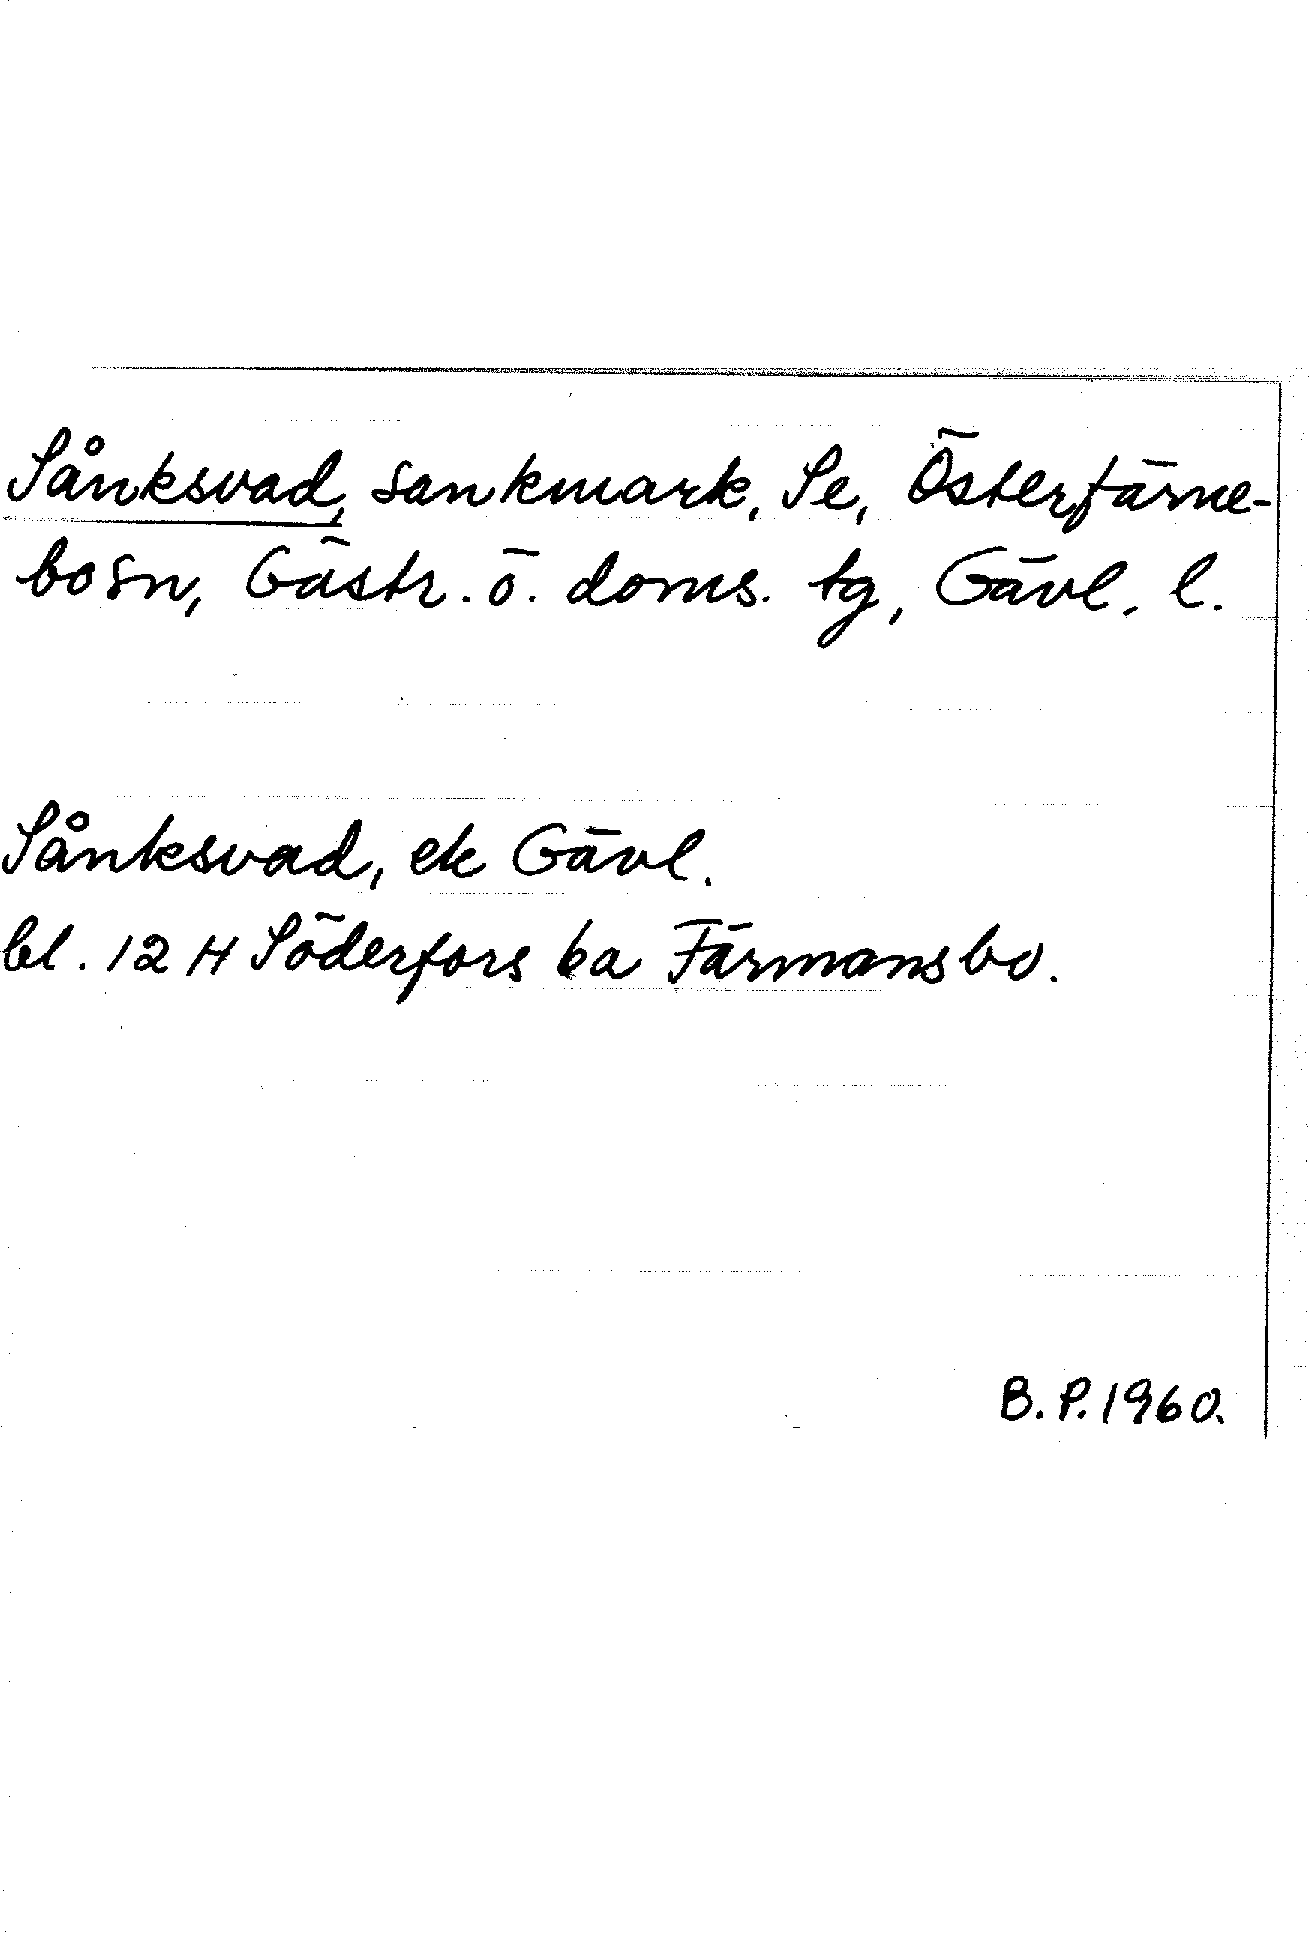 Sånksvad, sankmark, Se, Österfärne-
bo sn, Gästr. ö. doms. tg, Gävl. l.
Sånksvad, ek Gävl.
bl. 12 H Söderfors 6a Färmansbo.
B. P. 1960.